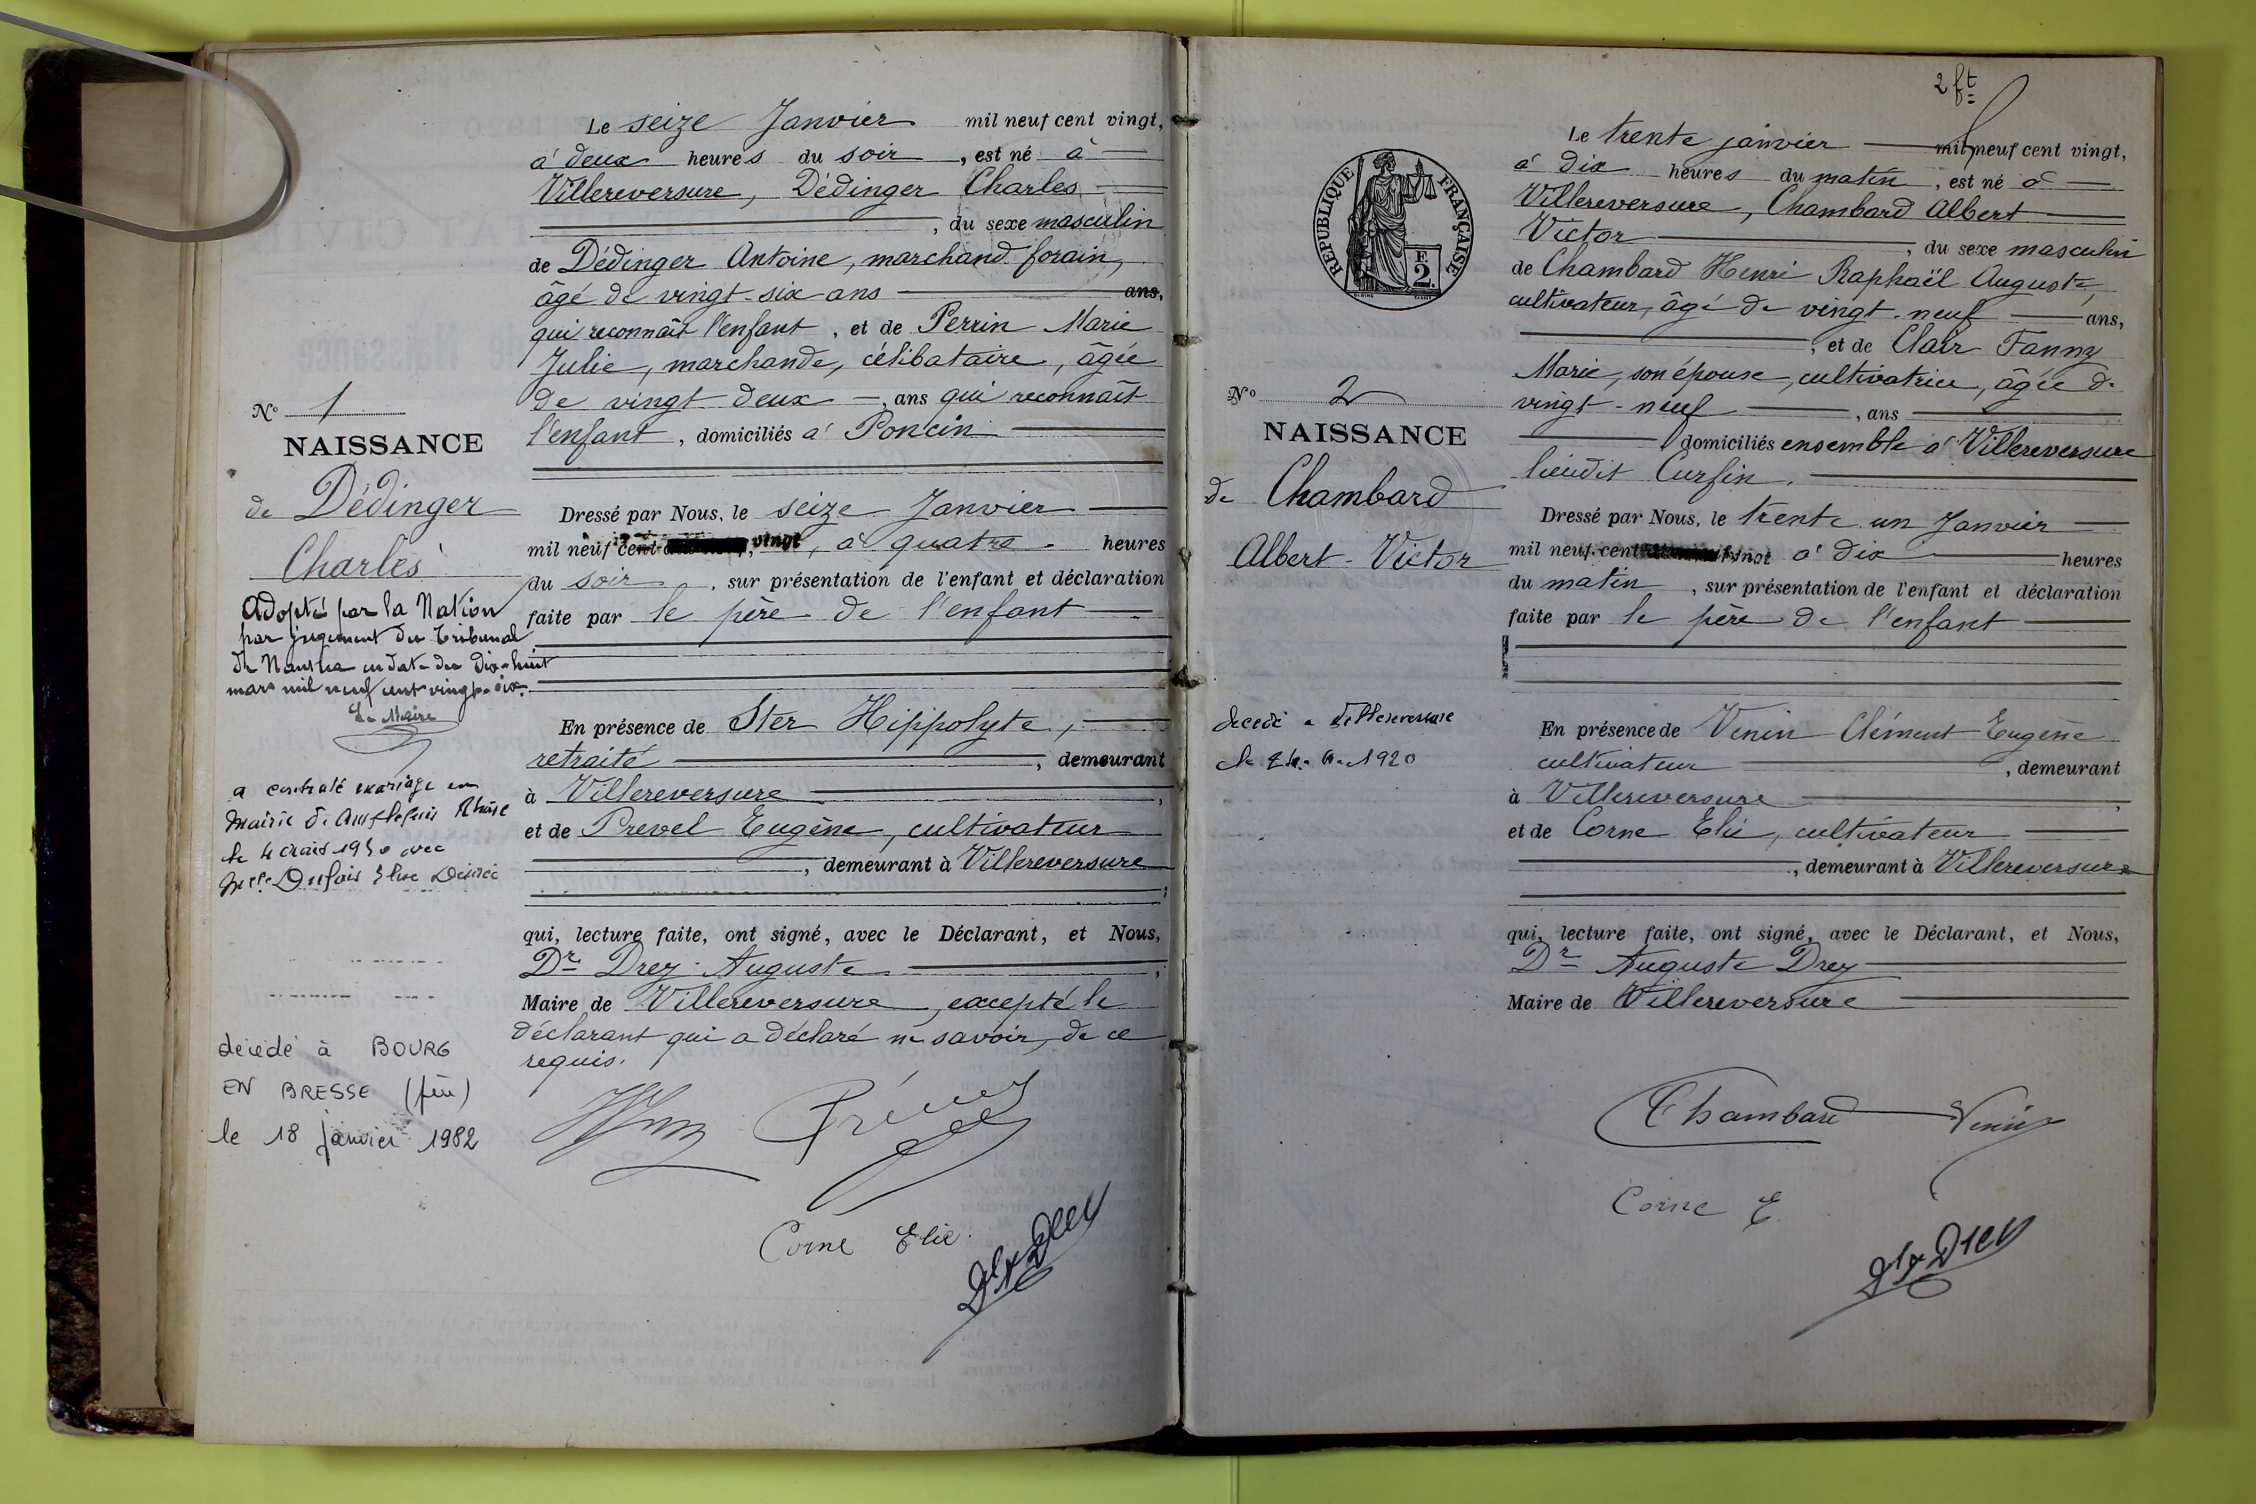 Le seize Janvier mil neuf cent vingt,
à deux heures du soir, est né à
Villereversure, Dédinger Charles
, du sexe masculin
de Dédinger Antoine, marchand forain,
âgé de vingt-six ans ans,
qui reconnaît l'enfant, et de Perrin Marie
Julie, marchande, célibataire, âgée
de vingt deux, ans qui reconnaît
l'enfant, domiciliés à Poncin
N° 1
NAISSANCE
de Dédinger
Charles
Adopté par la Nation
par jugement du Tribunal
de Nantua en date du dix-huit
mars mil neuf cent vingt-six.
Le Maire
a contracté mariage en
Mairie de Amplepuis Rhône
le 4 mars 19 avec
Melle Élise Désirée
décédé à BOURG
EN BRESSE
le 18 janvier 1982
Dressé par Nous, le seize Janvier
mil neuf cent vingt, à quatre heures
du soir, sur présentation de l'enfant et déclaration
faite par le père de l'enfant
En présence de Ster Hippolyte,
retraité, demeurant
à Villereversure,
et de Prevel Eugène, cultivateur
, demeurant à Villereversure
;
qui, lecture faite, ont signé, avec le Déclarant, et Nous,
Dr Drey Auguste,
Maire de Villereversure, excepté le
déclarant qui a déclaré ne savoir, de ce
requis.
Corne Elie
Dr A Drey
2 ft
RÉPUBLIQUE FRANÇAISE
F.
2.
Le trente janvier mil neuf cent vingt,
à dix heures du matin, est né à
Villereversure, Chambard Albert
Victor, du sexe masculin
de Chambard Henri Raphaël Auguste,
cultivateur, âgé de vingt-neuf ans,
, et de Clair Fanny
Marie, son épouse, cultivatrice, âgée de
vingt-neuf, ans
domiciliés ensemble à Villereversure
lieudit Cursin.
N° 2
NAISSANCE
de Chambard
Albert-Victor
décédé à Villereversure
le 1920
Dressé par Nous, le trente un Janvier
mil neuf cent vingt à dix heures
du matin, sur présentation de l'enfant et déclaration
faite par le père de l'enfant
En présence de Venin Clément Eugène
cultivateur, demeurant
à Villereversure,
et de Corne Elie, cultivateur
, demeurant à Villereversure
qui, lecture faite, ont signé, avec le Déclarant, et Nous,
Dr Auguste Drey
Maire de Villereversure
Chambard Venin
Corne E.
Dr A Drey